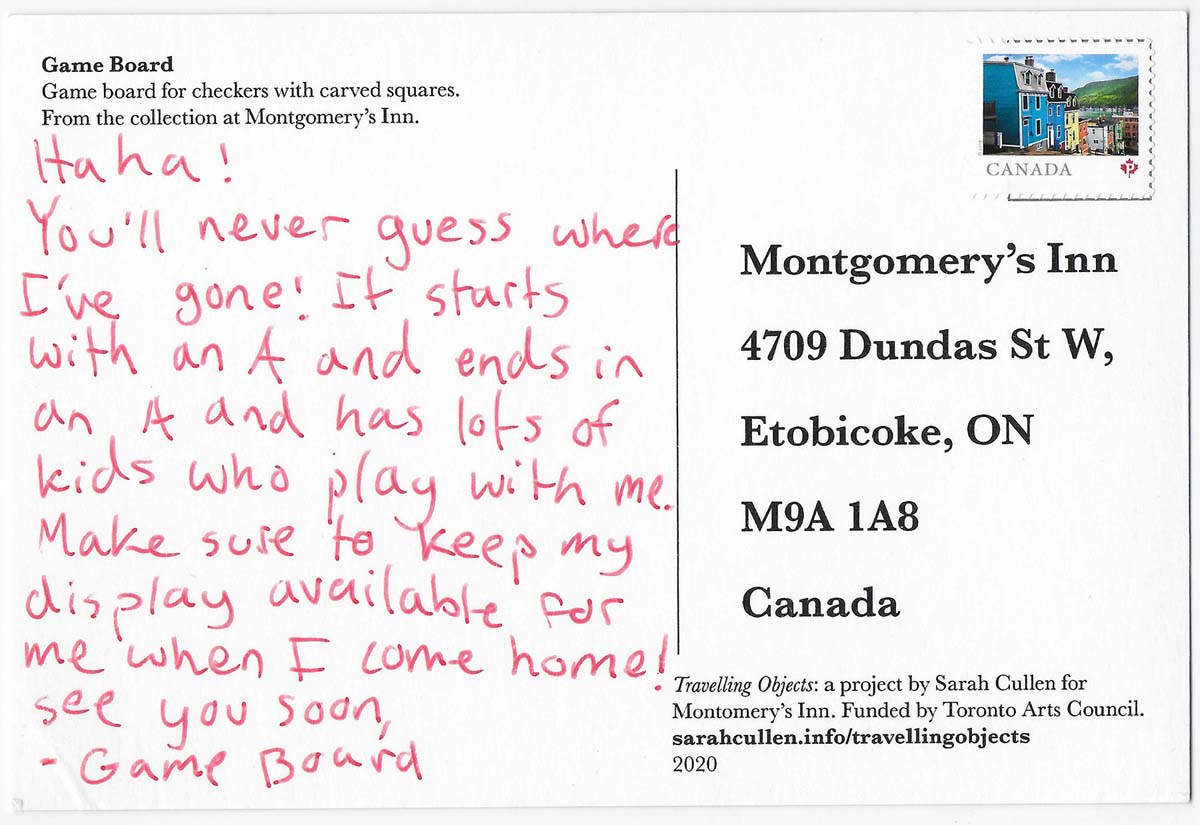 Game Board
Game board for checkers with carved squares.
From the collection at Montgomery's Inn.
Haha!
You'll never guess where
I've gone! It starts
with an A and ends in
an A and has lots of
kids who play with me.
Make sure to keep my
display available for
me when I come home!
see you soon,
- Game Board
CANADA
P
Montgomery's Inn
4709 Dundas St W,
Etobicoke, ON
M9A 1A8
Canada
Travelling Objects: a project by Sarah Cullen for
Montomery's Inn. Funded by Toronto Arts Council.
sarahcullen.info/travellingobjects
2020